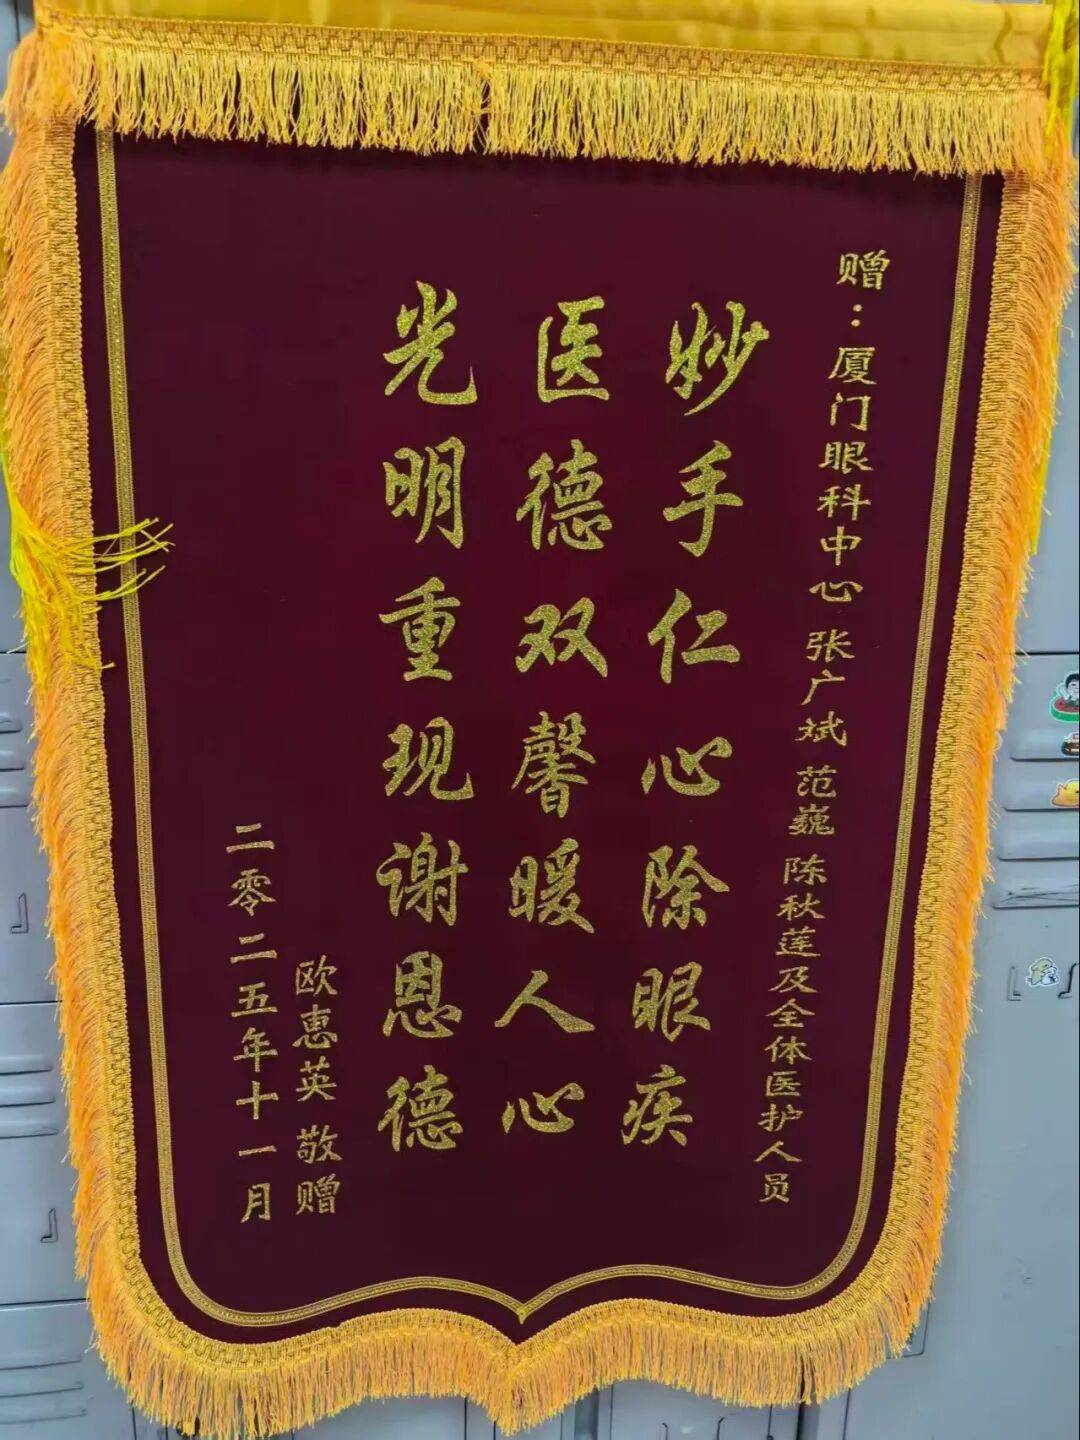 赠：厦门眼科中心 张广斌 范巍 陈秋莲及全体医护人员
妙手仁心除眼疾
医德双馨暖人心
光明重现谢恩德
欧惠英 敬赠
二零二五年十一月